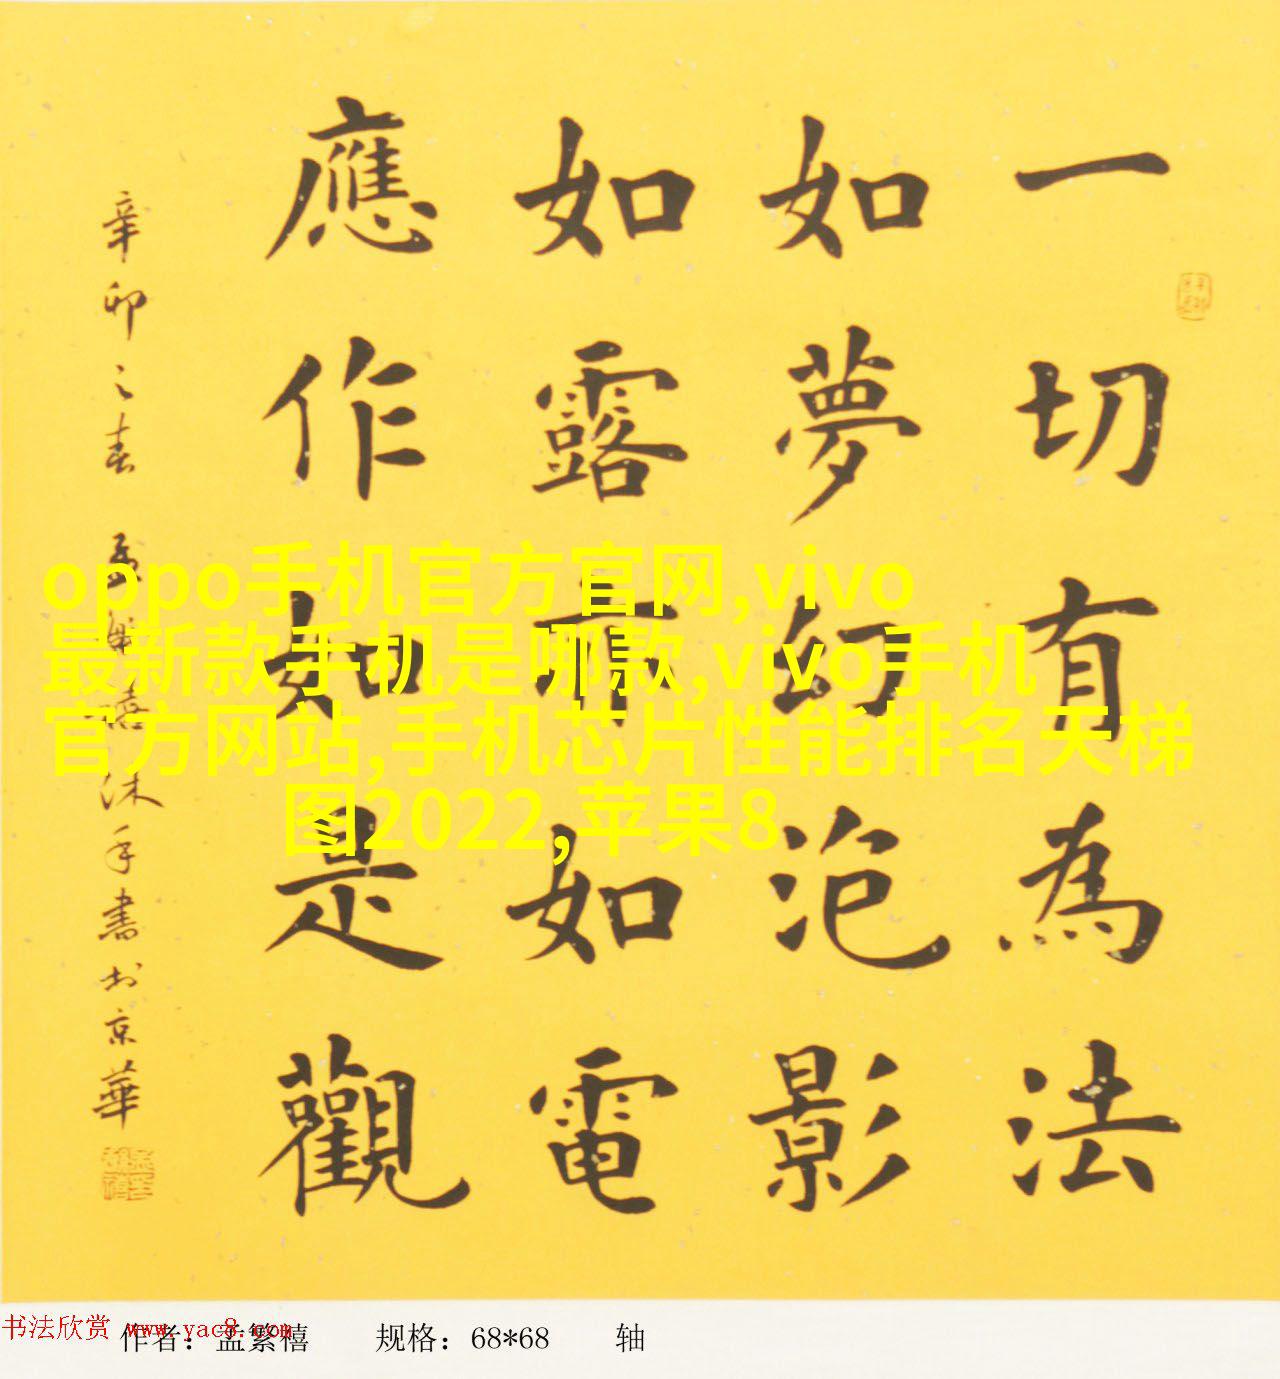 一切有為法
如夢幻泡影
如露亦如電
應作如是觀
辛卯之春 孟繁禧沐手書於京華
oppo手机官方官网,vivo
最新款手机是哪款,vivo手机
官方网站,手机芯片性能排名天梯
图2022,苹果8
书法欣赏 www.yac8.com
作者：孟繁禧 规格：68*68 轴